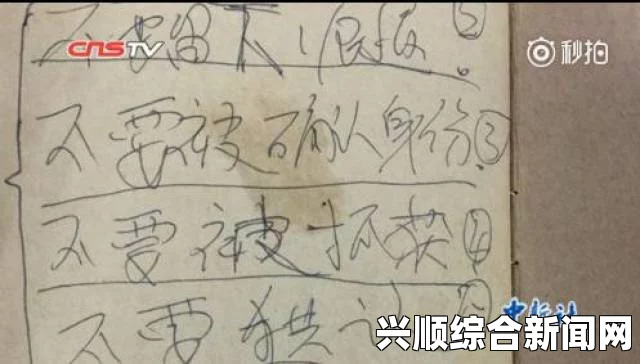 CNSTV
秒拍
不要留下 ②
不要被确认身份③
不要被抓获④
不要
中新社
兴顺综合新闻网